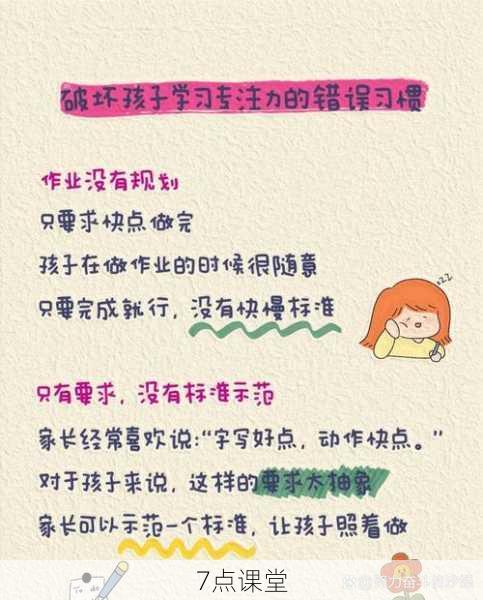 破坏孩子学习专注力的错误习惯
作业没有规划
只要求快点做完
孩子在做作业的时候很随意
只要完成就行，没有快慢标准
zzz
只有要求，没有标准示范
家长经常喜欢说:“字写好点，动作快点。”
对于孩子来说，这样的要求太抽象
家长可以示范一个标准，让孩子照着做
To do
7点课堂